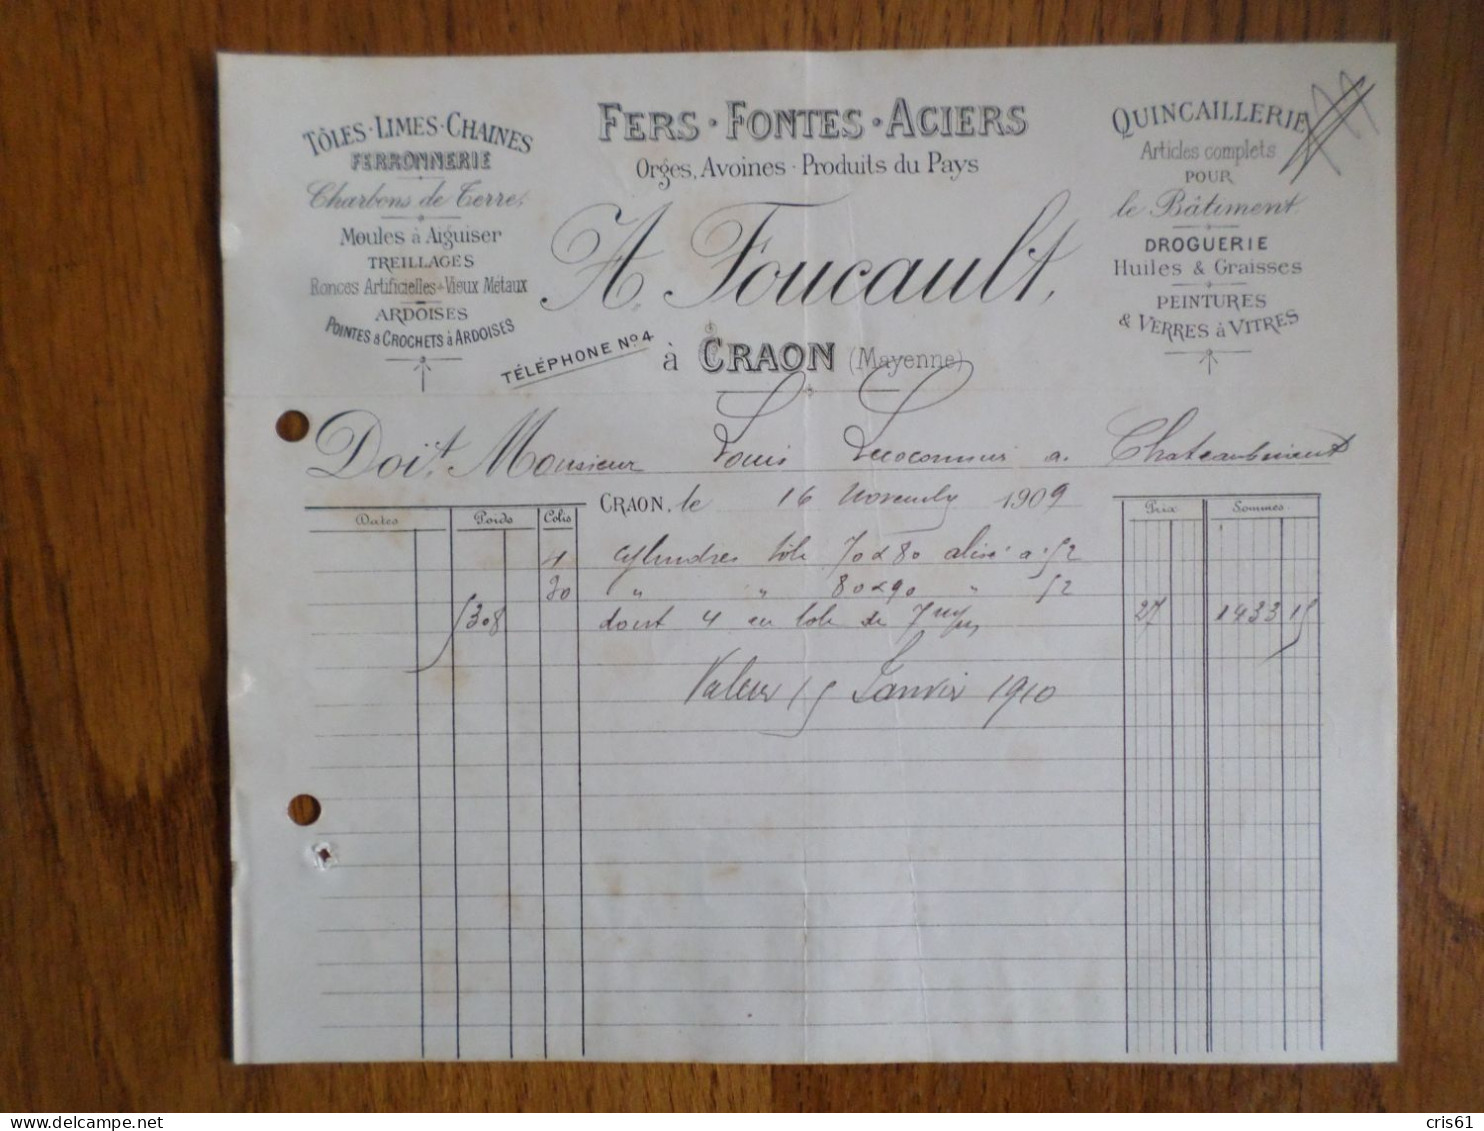 TÔLES · LIMES · CHAINES
FERRONNERIE
Charbons de Terre,
Meules à Aiguiser
TREILLAGES
Ronces Artificielles · Vieux Métaux
ARDOISES
POINTES & CROCHETS à ARDOISES
FERS · FONTES · ACIERS
Orges, Avoines · Produits du Pays
A. Foucault,
TÉLÉPHONE No 4
à CRAON (Mayenne)
QUINCAILLERIE
Articles complets
POUR
le Bâtiment
DROGUERIE
Huiles & Graisses
PEINTURES
& VERRES à VITRES
Doit Monsieur Louis à Chateaubriant
CRAON, le 16 novembre 1909
Dates Poids Colis Prix Sommes
4 cylindres tôle 70 x 80 à 52
30 " " 80 x 90 " 52
5308 dont 4 en tole de 7 27 1433 15
Valeur 15 Janvier 1910
delcampe.net
cris61